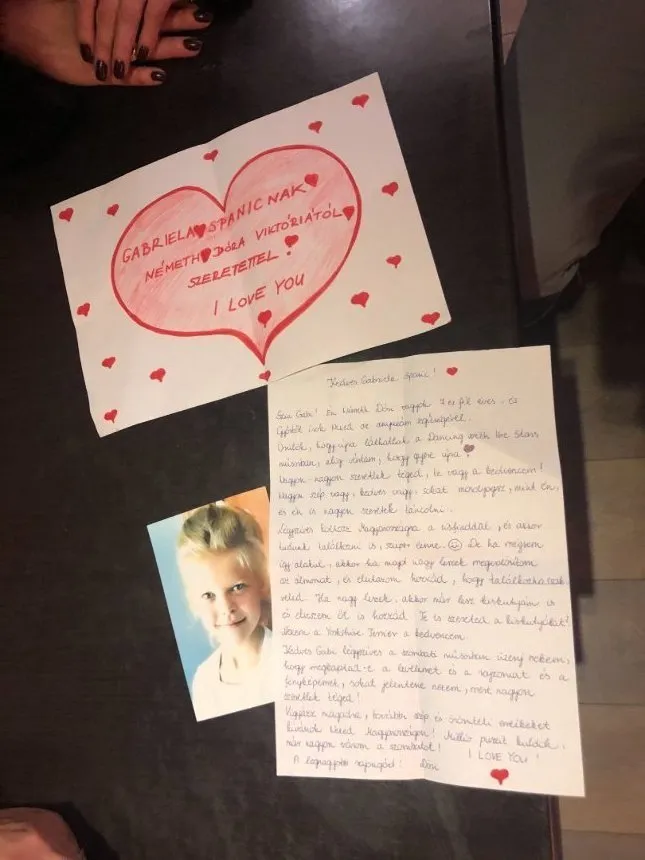 GABRIELA SPANICNAK
NÉMETH DÓRA VIKTÓRIÁTÓL
SZERETETTEL!
I LOVE YOU
Kedves Gabriela Spanic!
Szia Gabi! Én Németh Dóri vagyok 7 és fél éves, és
írok Neked az anyukám segítségével.
Örülök, hogy újra láthatlak a Dancing with the Stars
műsorban, alig vártam, hogy gyere újra!
Nagyon nagyon szeretlek téged, te vagy a kedvencem!
Nagyon szép vagy, kedves vagy, sokat mosolyogsz, mint én,
és én is nagyon szeretek táncolni.
Légyszíves költözz Magyarországra a kisfiaddal, és akkor
tudunk találkozni is, szuper lenne. De ha mégsem
így alakul, akkor ha majd nagy leszek megvalósítom
az álmomat, és elutazom hozzád, hogy találkozhassak
veled. Ha nagy leszek, akkor már lesz kiskutyám is
és elviszem őt is hozzád. Te is szereted a kiskutyákat?
Nekem a Yorkshire Terrier a kedvencem.
Kedves Gabi légyszíves a szombati műsorban üzenj nekem,
hogy megkaptad-e a levelemet és a rajzomat és a
fényképemet, sokat jelentene nekem, mert nagyon
szeretlek téged!
Vigyázz magadra, további szép és örömteli emlékeket
kívánok Neked Magyarországon! Millió puszit küldök,
már nagyon várom a szombatot! I LOVE YOU!
A legnagyobb rajongód! Dóri